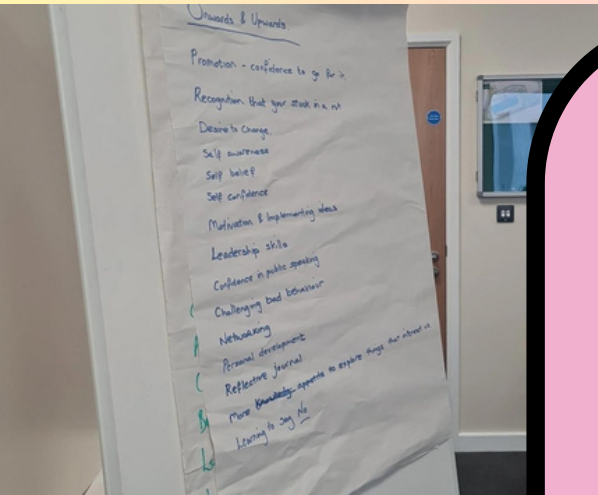 Onwards & Upwards
Promotion - confidence to go for it.
Recognition that your stuck in a rut
Desire to Change.
Self awareness
Self belief
Self confidence
Motivation & Implementing ideas
Leadership skills
Confidence in public speaking
Challenging bad behaviour
Networking
Personal development
Reflective journal
More appetite to explore things that interest us
Learning to say No